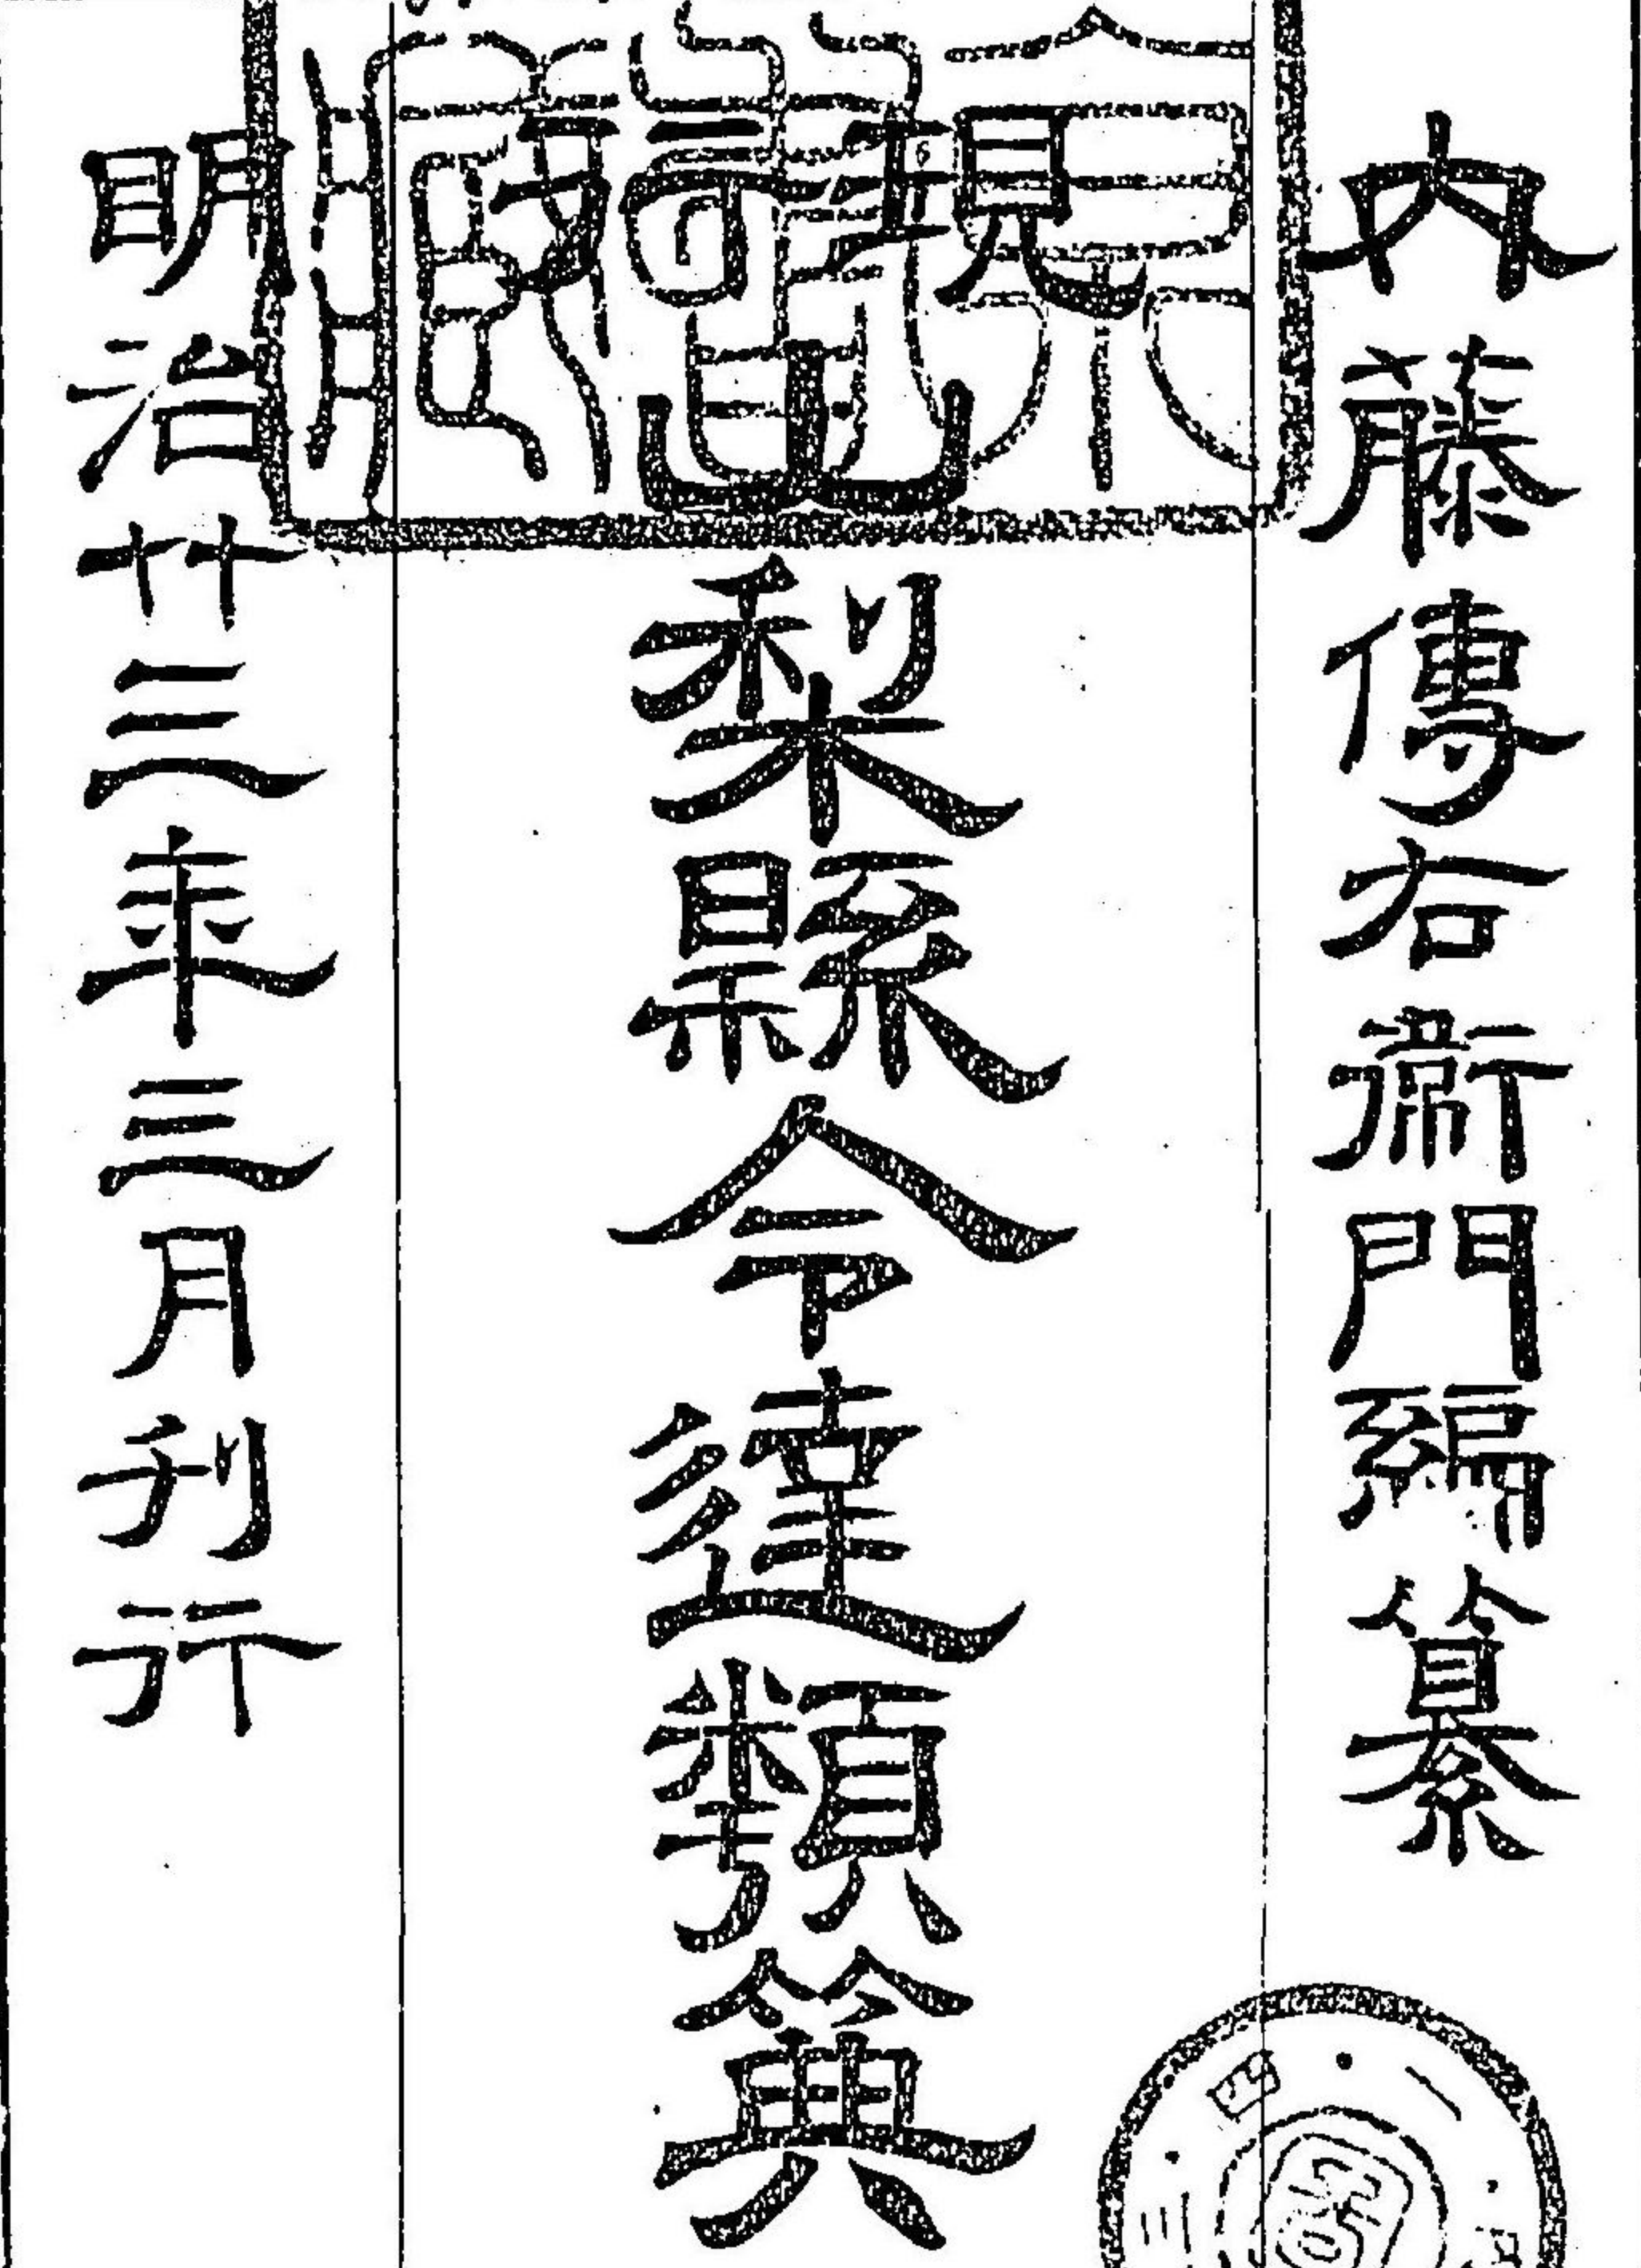 内藤傳右衛門編纂
現行
山梨縣令達類典
明治廿三年三月刊行